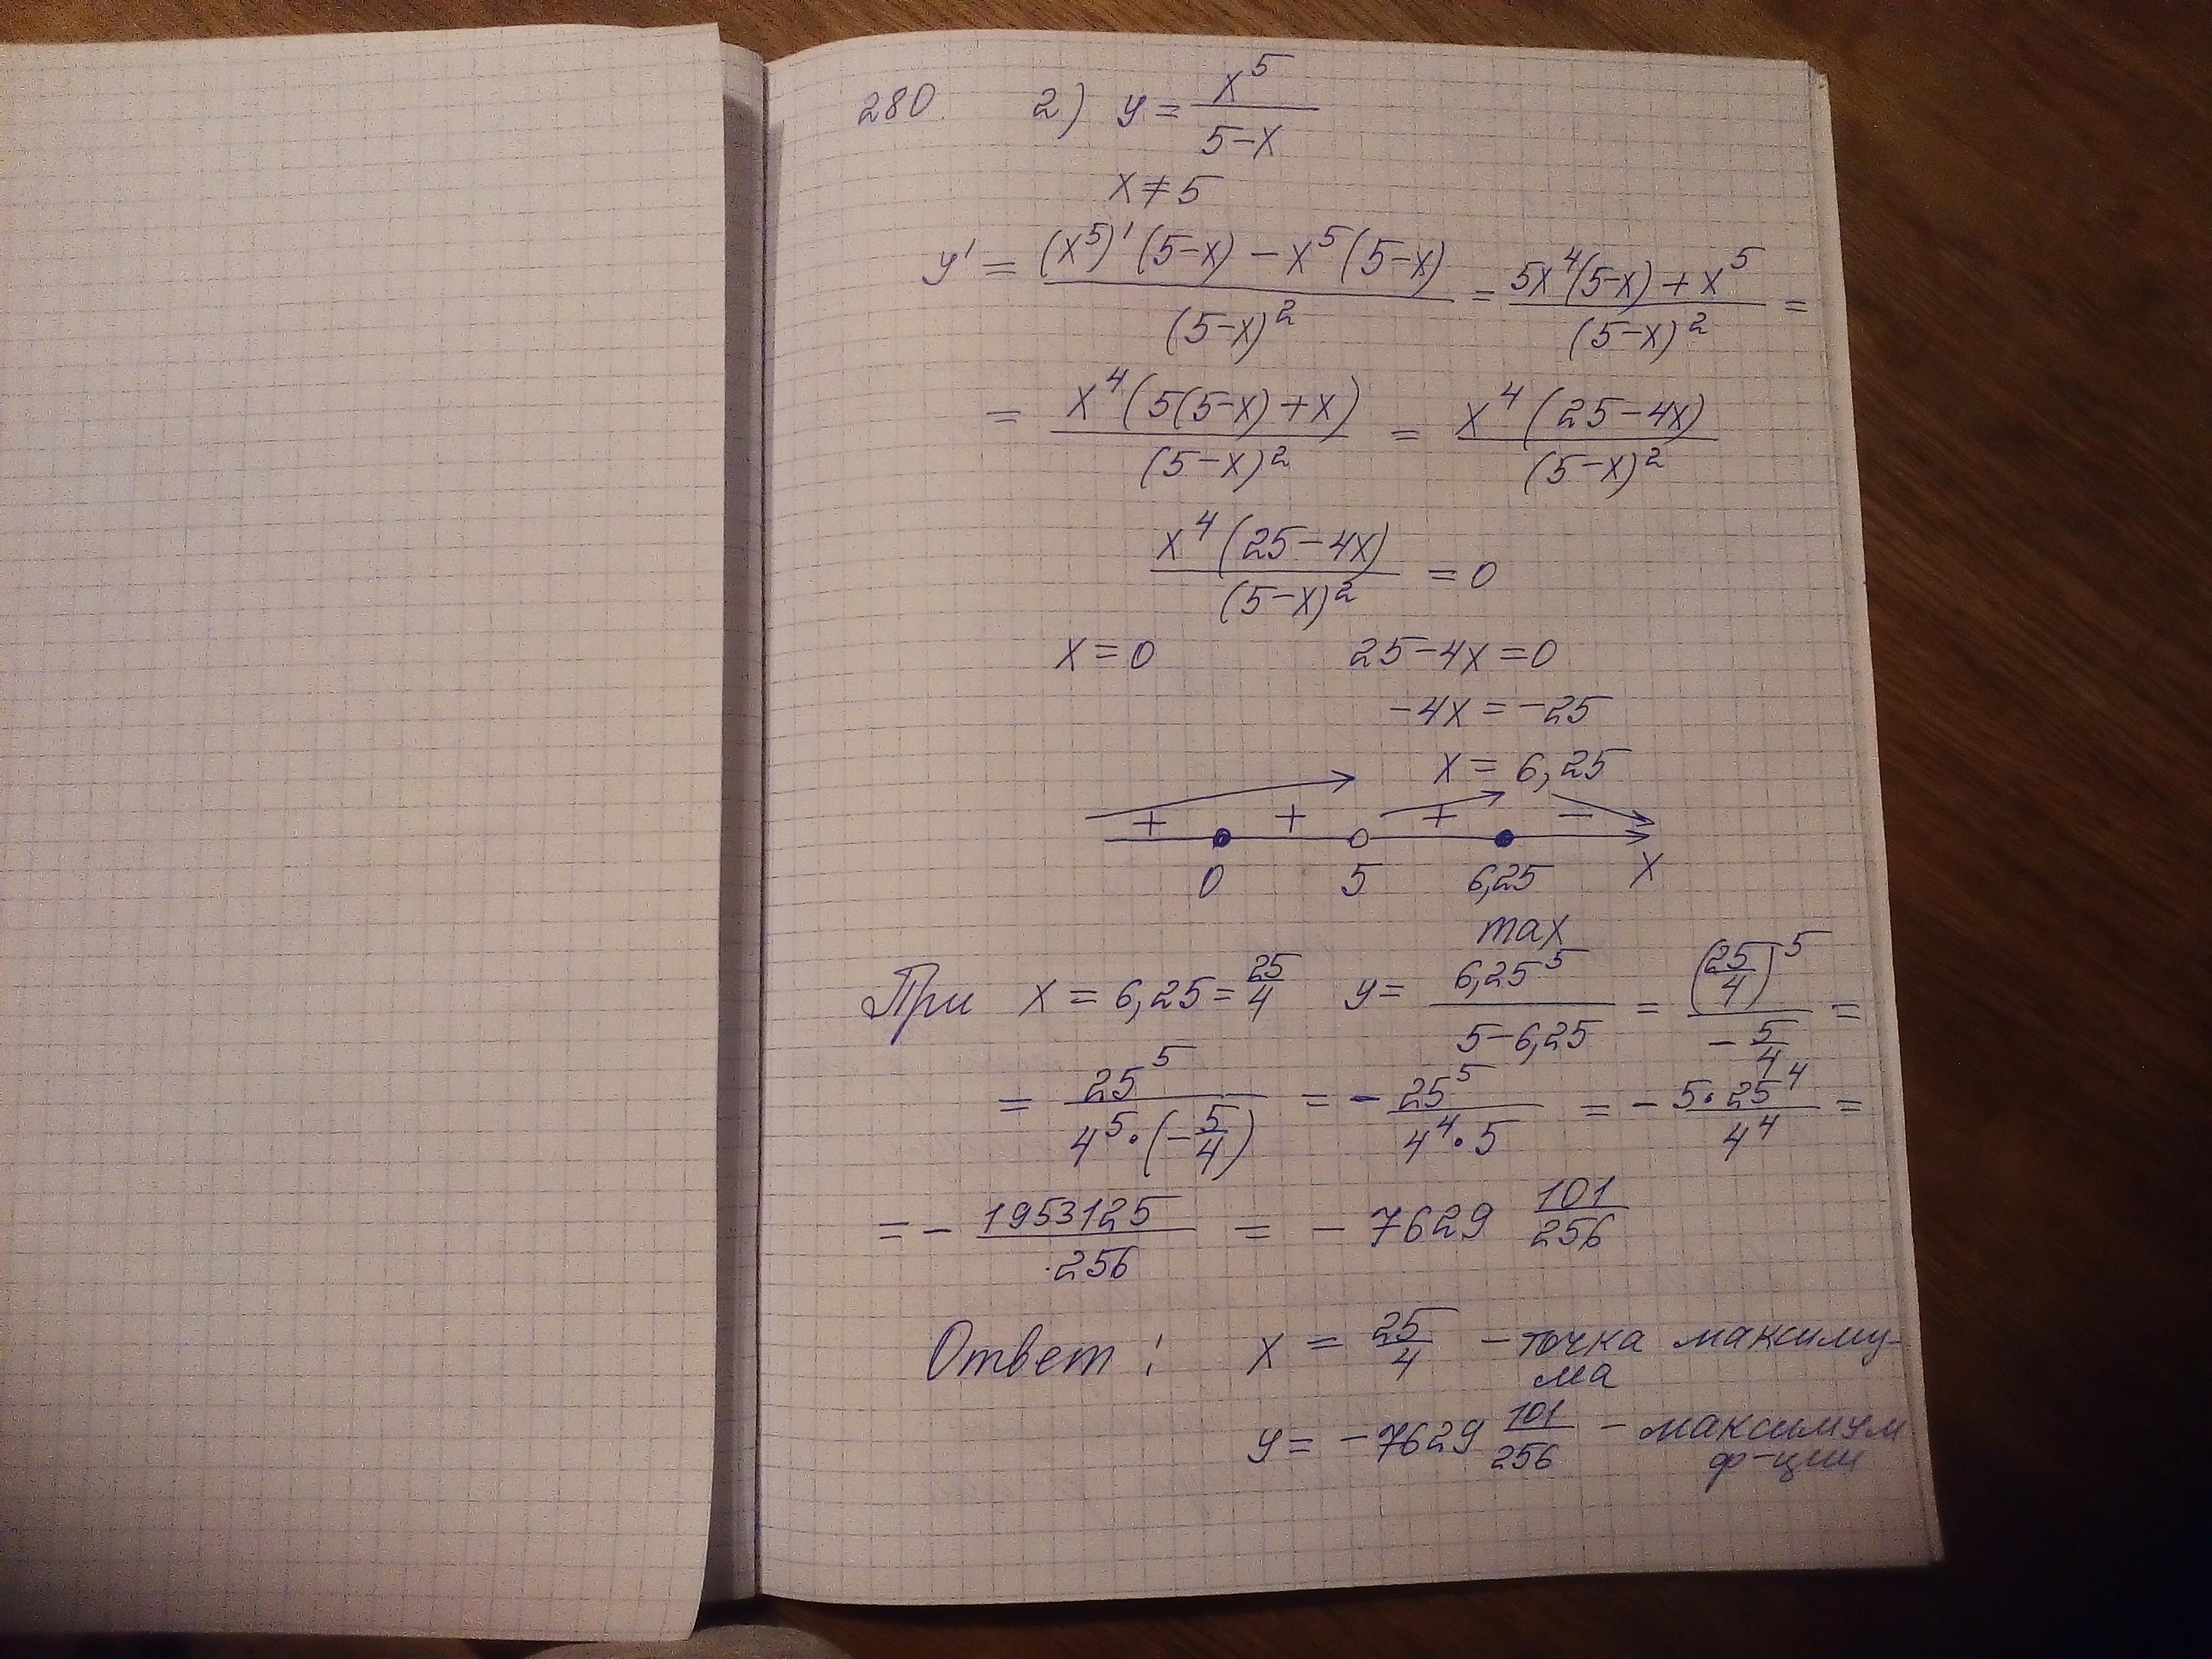 280. 2) y = x⁵/(5-x)
x ≠ 5
y' = ((x⁵)'(5-x) - x⁵(5-x))/(5-x)² = (5x⁴(5-x) + x⁵)/(5-x)² =
= x⁴(5(5-x)+x)/(5-x)² = x⁴(25-4x)/(5-x)²
x⁴(25-4x)/(5-x)² = 0
x = 0 25-4x = 0
-4x = -25
x = 6,25
+ + + -
0 5 6,25 x
max
При x = 6,25 = 25/4 y = 6,25⁵/(5-6,25) = (25/4)⁵/(-5/4) =
= 25⁵/(4⁵·(-5/4)) = - 25⁵/(4⁴·5) = - 5·25⁴/4⁴ =
= - 1953125/256 = - 7629 101/256
Ответ: x = 25/4 - точка максиму-
ма
y = -7629 101/256 - максимум
ф-ции